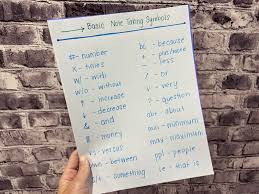 → Basic Note Taking Symbols
# - number
x - times
w/ - with
w/o - without
↑ - increase
↓ - decrease
& - and
$ - money
vs - versus
btwn - between
s/t - something
b/c - because
± - plus/more
- less
/ - or
v - very
? - question
abt - about
min - minimum
max - maximum
ppl - people
ie - that is